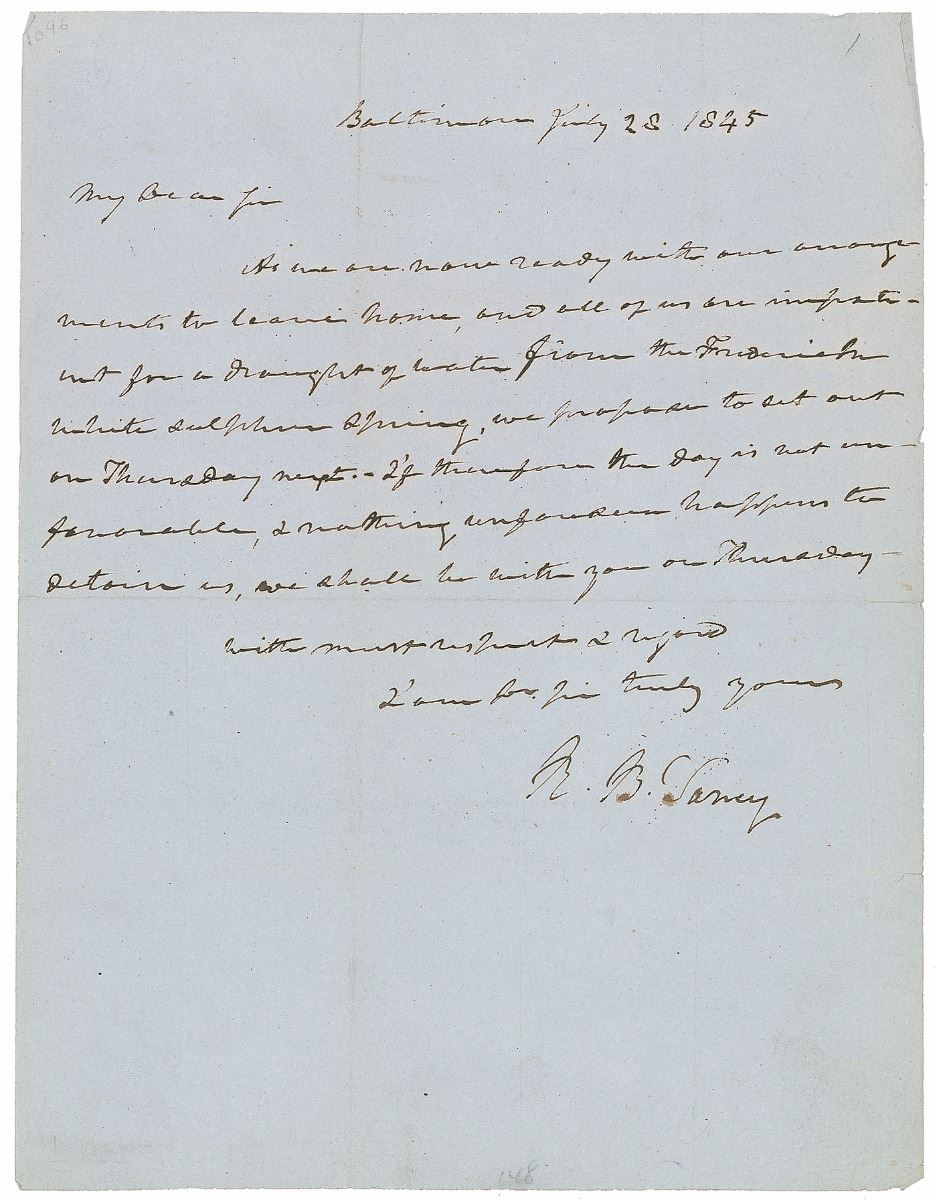 1096
Baltimore July 28 1845
My Dear Sir
As we are now ready with our arrange
ments to leave home, and all of us are impati-
ent for a draught of water from the Frederick
White sulphur spring, we propose to set out
on Thursday next. - If therefore the day is not un-
favorable, & nothing unforeseen happens to
detain us, we shall be with you on Thursday -
with much respect & regard
I am Dr. Sir truly yours
R. B. Taney
148